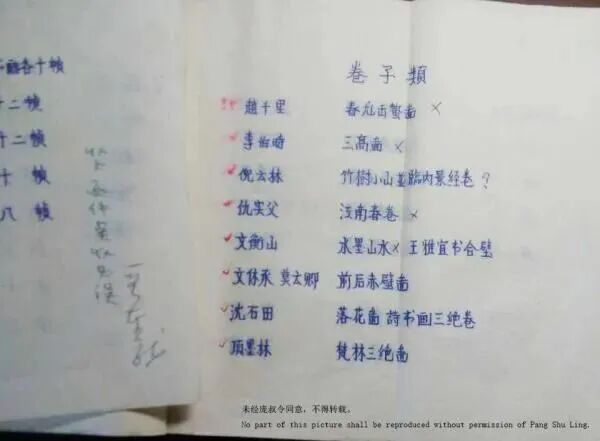 各十幀
十二幀
十二幀
十 幀
八 幀
卷子類
趙千里 春龙出蟄啚 ×
李伯時 三高啚 ×
倪云林 竹樹小山並臨内景経卷?
仇实父 江南春卷 ×
文衡山 水墨山水× 王雅宜书合壁
文休承 莫云卿 前后赤壁啚
沈石田 落花啚 詩书画三绝卷
項墨林 梵林三绝啚
未经庞叔令同意，不得转载。
No part of this picture shall be reproduced without permission of Pang Shu Ling.